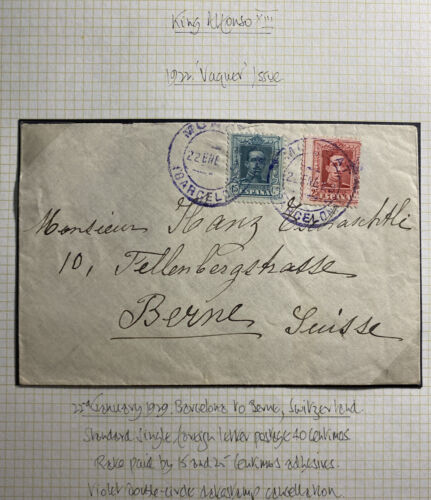 King Alfonso XIII
1922 'Vaquer' Issue
22 ENE
(BARCELO
ESPAÑA
Monsieur Hanz
10, Fellenbergstrasse
Berne, Suisse
January 1929 Barcelona to Berne, Switzerland.
Standard single foreign letter postage 40 centimos
Rate paid by 15 and 25 centimos adhesives.
Violet double-circle datestamp cancellation